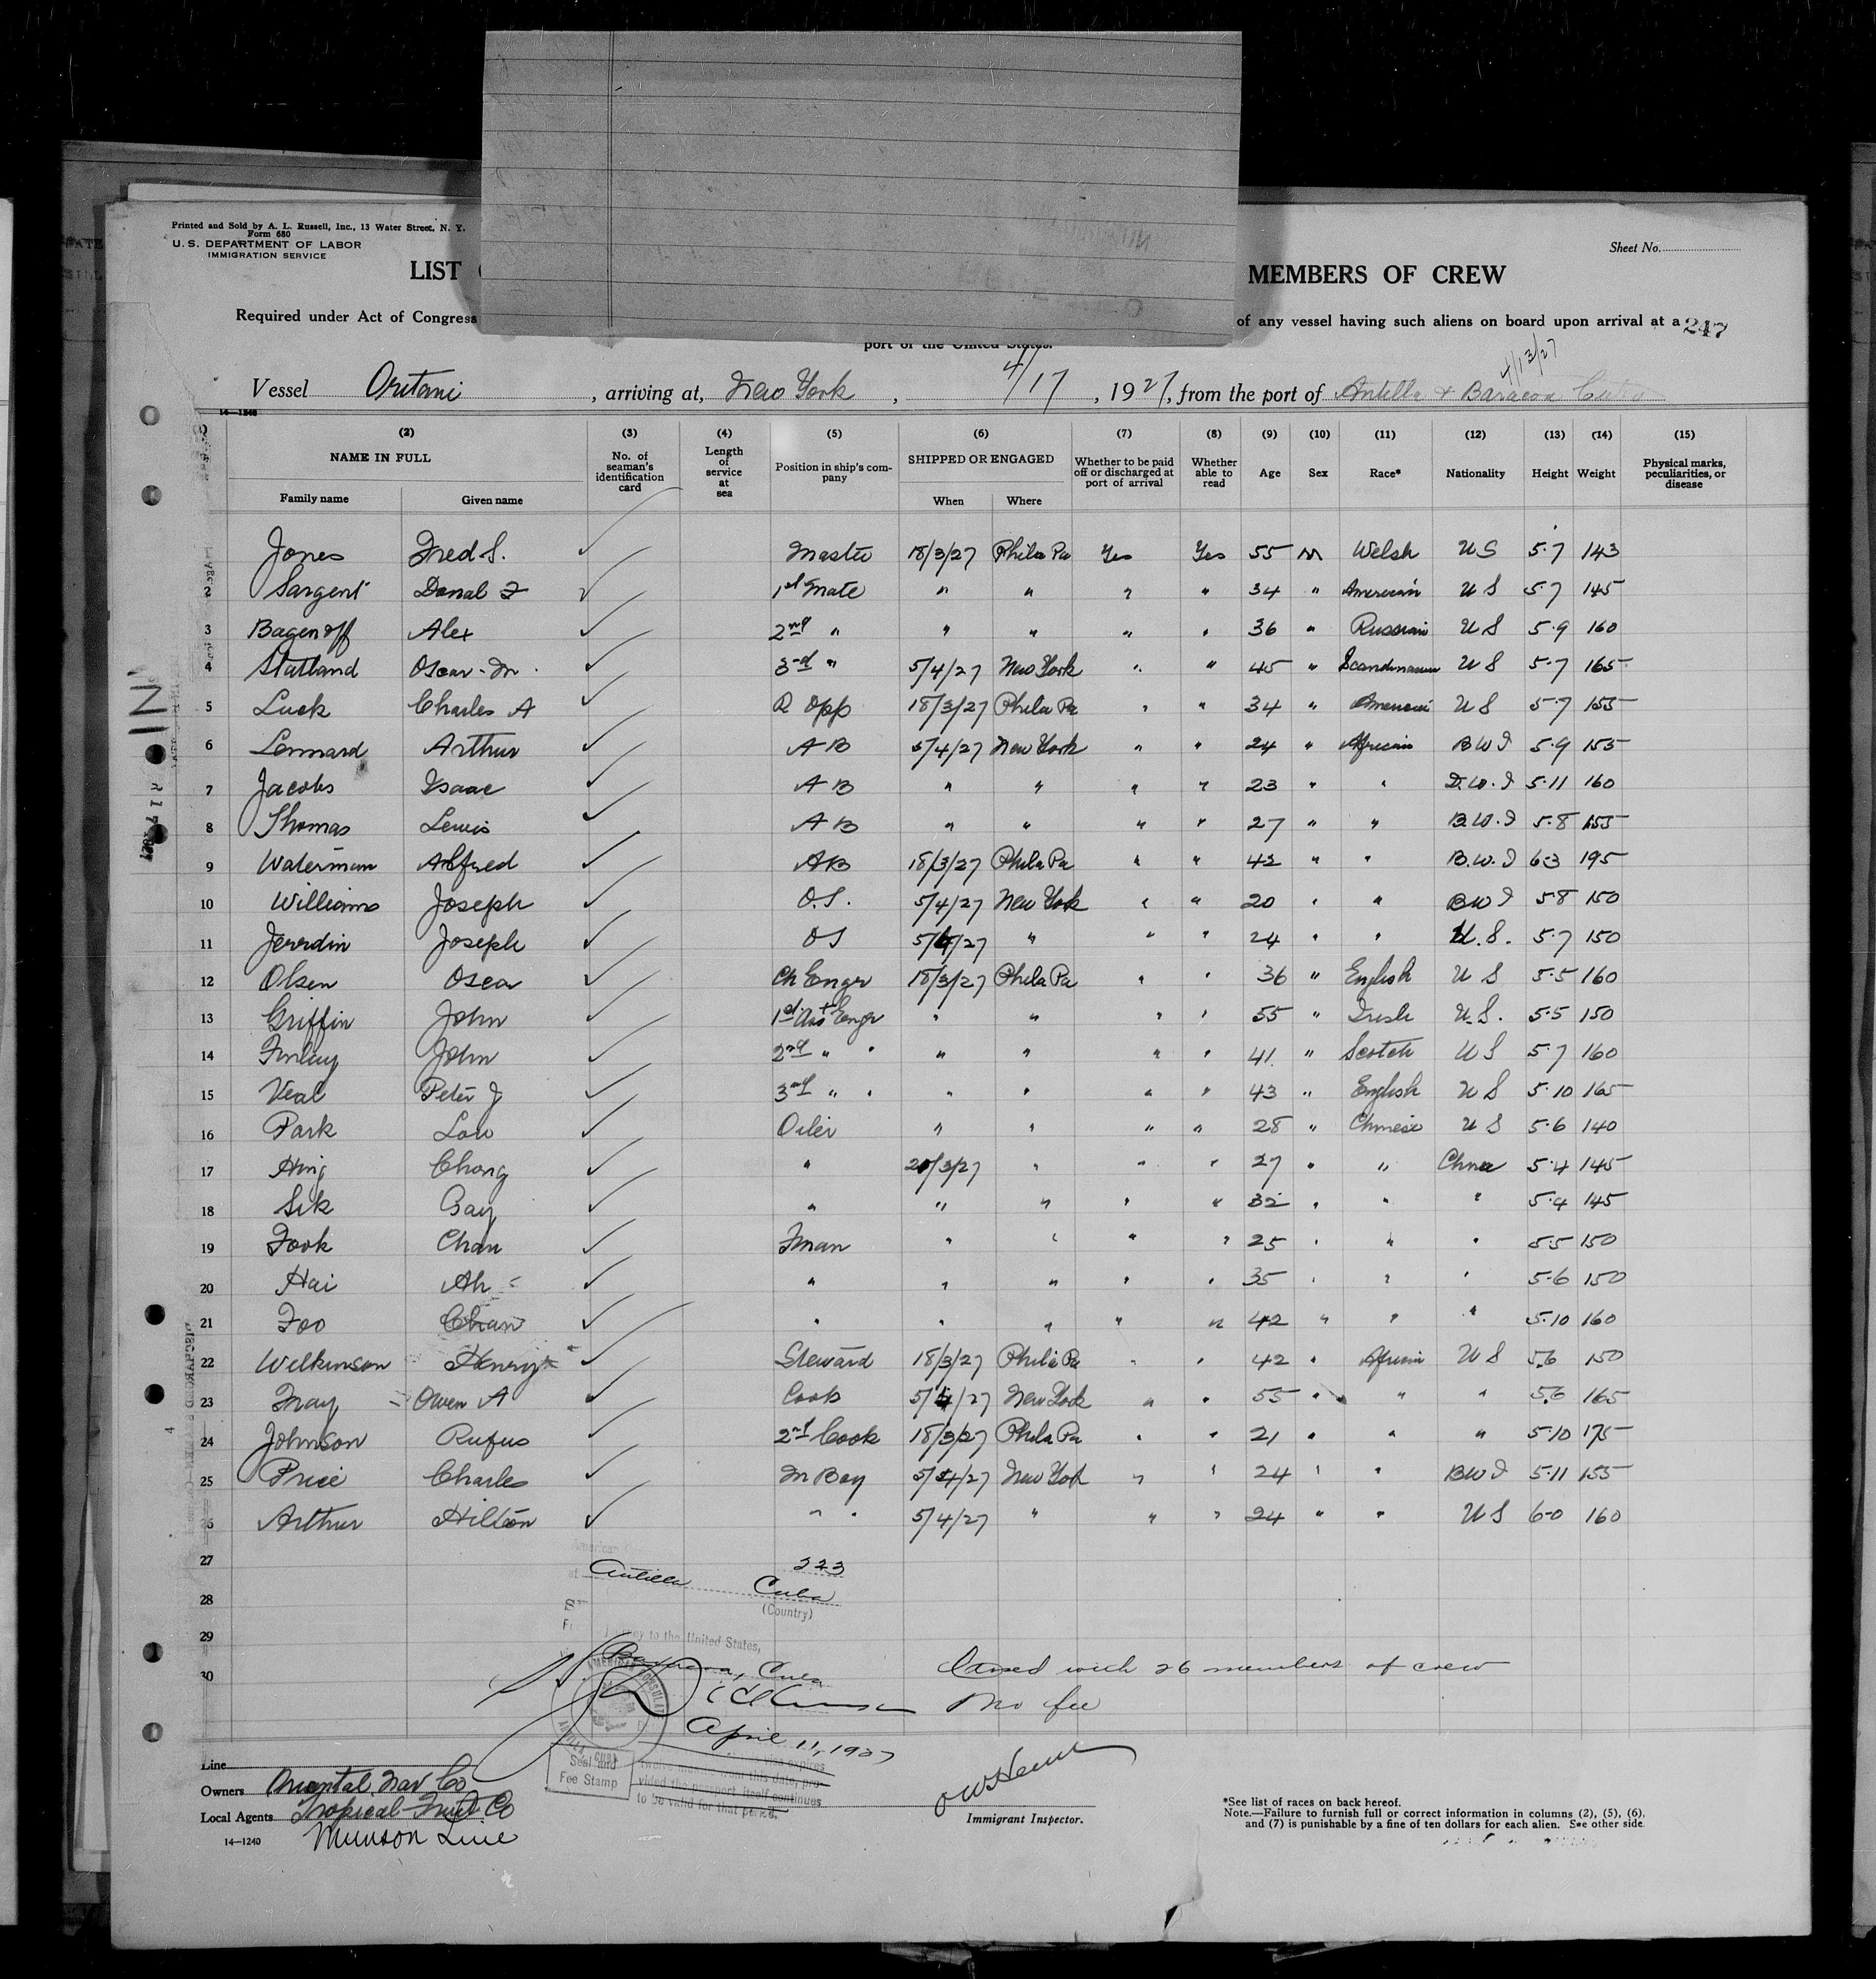 Printed and Sold by A. L. Russell, Inc., 13 Water Street, N. Y.
Form 680
U. S. DEPARTMENT OF LABOR
IMMIGRATION SERVICE
Sheet No.
LIST
MEMBERS OF CREW
Required under Act of Congress
of any vessel having such aliens on board upon arrival at a
247
port of the United States.
4/13/27
Vessel Oritani, arriving at, New York, 4/17, 1927, from the port of Antilla & Baracoa Cuba
14—1240
(2) (3) (4) (5) (6) (7) (8) (9) (10) (11) (12) (13) (14) (15)
NAME IN FULL No. of seaman's identification card Length of service at sea Position in ship's company SHIPPED OR ENGAGED Whether to be paid off or discharged at port of arrival Whether able to read Age Sex Race* Nationality Height Weight Physical marks, peculiarities, or disease
Family name Given name When Where
Jones Fred S. Master 18/3/27 Phila Pa Yes Yes 55 M Welsh U S 5.7 143
2 Sargent Donal F 1st Mate " " " " 34 " American U S 5.7 145
3 Bagenoff Alex 2nd " " " " " 36 " Russian U S 5.9 160
4 Statland Oscar M. 3rd " 5/4/27 New York " " 45 " Scandinavian U S 5.7 165
5 Luck Charles A R Opp 18/3/27 Phila Pa " " 34 " American U S 5.7 155
6 Lennard Arthur A B 5/4/27 New York " " 24 " African B W I 5.9 155
7 Jacobs Isaac A B " " " " 23 " " D. W. I 5.11 160
8 Thomas Lewis A B " " " " 27 " " B. W. I 5.8 155
9 Waterman Alfred A B 18/3/27 Phila Pa " " 42 " " B. W. I 6.3 195
10 Williams Joseph O. S. 5/4/27 New York " " 20 " " B W I 5.8 150
11 Jerrdin Joseph O S 5/4/27 " " " 24 " " U. S. 5.7 150
12 Olsen Oscar Ch Engr 18/3/27 Phila Pa " " 36 " English U S 5.5 160
13 Griffin John 1st Asst Engr " " " " 55 " Irish U. S. 5.5 150
14 Finlay John 2nd " " " " " " 41 " Scotch U S 5.7 160
15 Veal Peter J 3rd " " " " " " 43 " English U S 5.10 165
16 Park Low Oiler " " " " 28 " Chinese U S 5.6 140
17 Hing Chong " 20/3/27 " " " 27 " " China 5.4 145
18 Sik Gay " " " " " 32 " " " 5.4 145
19 Fook Chan Fman " " " " 25 " " " 5.5 150
20 Hai Ah " " " " " 35 " " " 5.6 150
21 Foo Chan " " " " " 42 " " " 5.10 160
22 Wilkinson Henry Steward 18/3/27 Phila Pa " " 42 " African U S 5.6 150
23 Fray Owen A Cook 5/4/27 New York " " 55 " " " 5.6 165
24 Johnson Rufus 2nd Cook 18/3/27 Phila Pa " " 21 " " " 5.10 175
25 Price Charles M Boy 5/4/27 New York " " 24 " " B W I 5.11 155
26 Arthur Hilton " " 5/4/27 " " " 24 " " U S 6.0 160
27
223
Antilla Cuba
28
(Country)
29
journey to the United States,
Baracoa, Cuba
30
Closed with 26 members of crew
No fee
April 11, 1927
AMERICAN CONSULAR
Seal and Fee Stamp
vided the passport itself continues
to be valid for that period.
Line
Owners Oriental Nav Co
Local Agents Tropical Fruit Co
Munson Line
14—1240
Immigrant Inspector.
*See list of races on back hereof.
Note.—Failure to furnish full or correct information in columns (2), (5), (6),
and (7) is punishable by a fine of ten dollars for each alien. See other side.